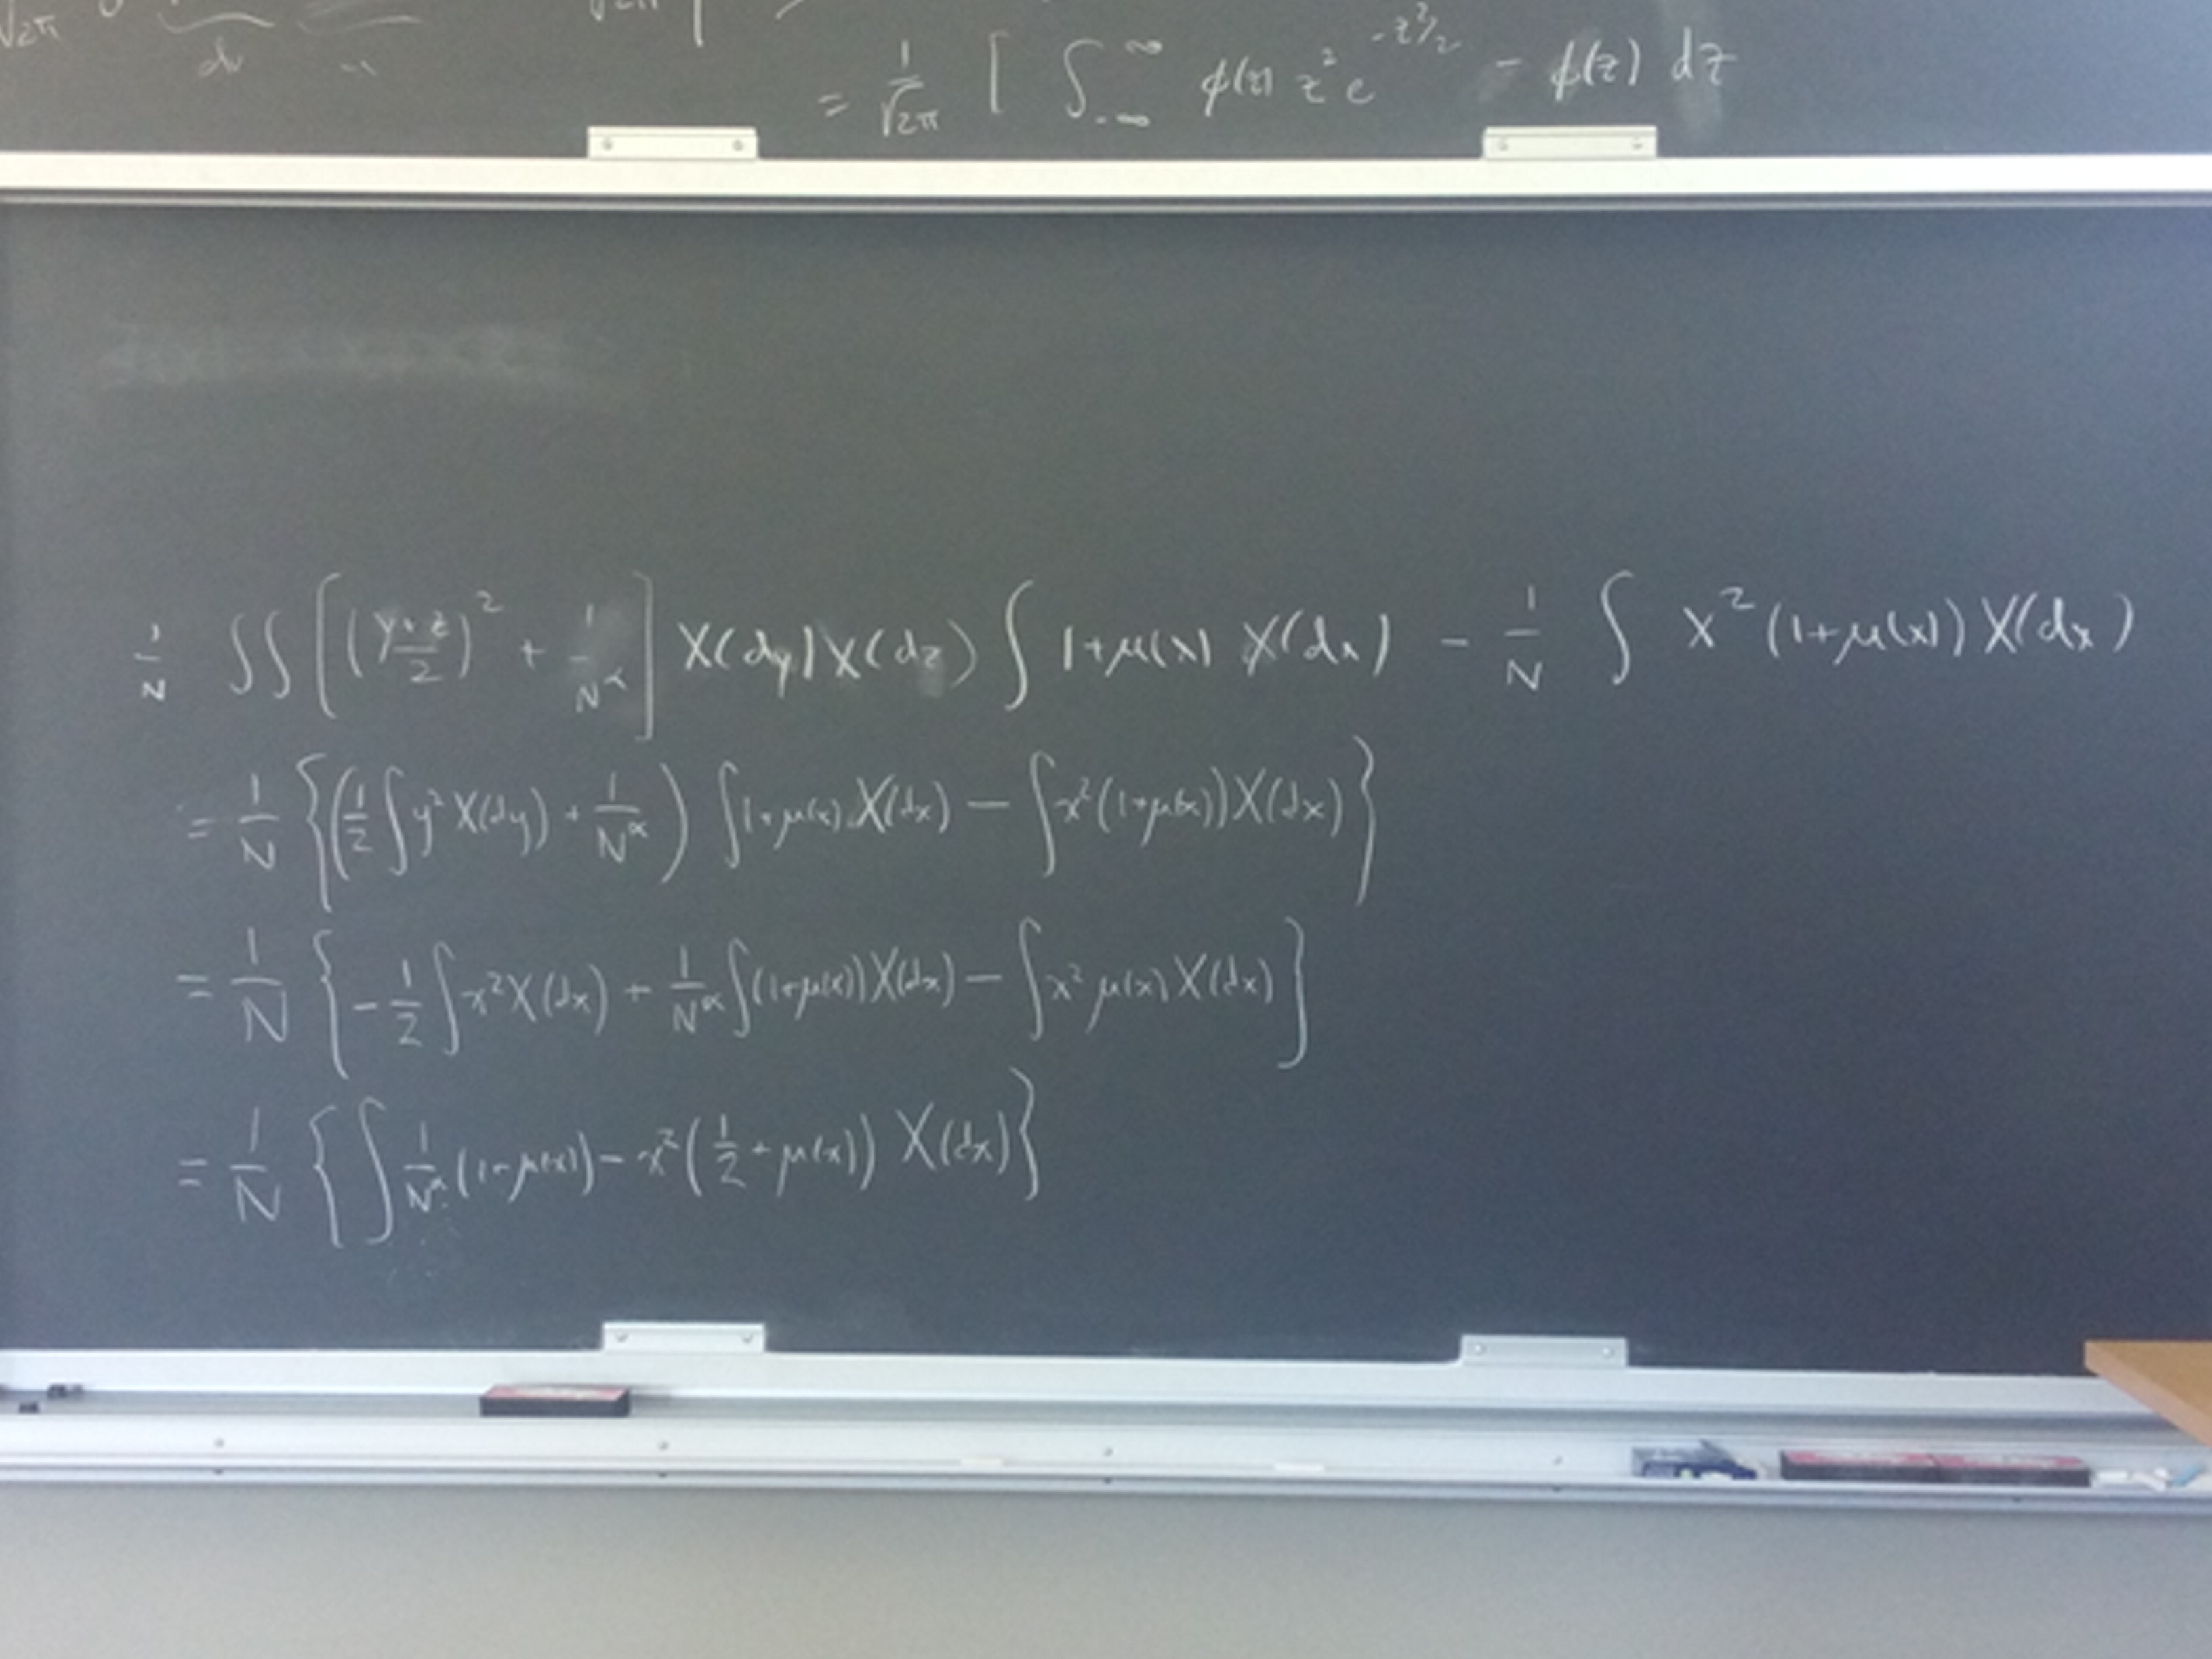 √2π dv √2π
= 1/√2π [ ∫_{-∞}^{∞} φ(z) z² e^{-z²/2} - φ(z) dz
1/N ∬ [ ((y+z)/2)² + 1/N^α ] X(dy) X(dz) ∫ 1+μ(x) X(dx) - 1/N ∫ x² (1+μ(x)) X(dx)
= 1/N { ( 1/2 ∫ y² X(dy) + 1/N^α ) ∫ 1+μ(x) X(dx) - ∫ x² (1+μ(x)) X(dx) }
= 1/N { -1/2 ∫ x² X(dx) + 1/N^α ∫ (1+μ(x)) X(dx) - ∫ x² μ(x) X(dx) }
= 1/N { ∫ 1/N^α (1+μ(x)) - x² ( 1/2 + μ(x) ) X(dx) }